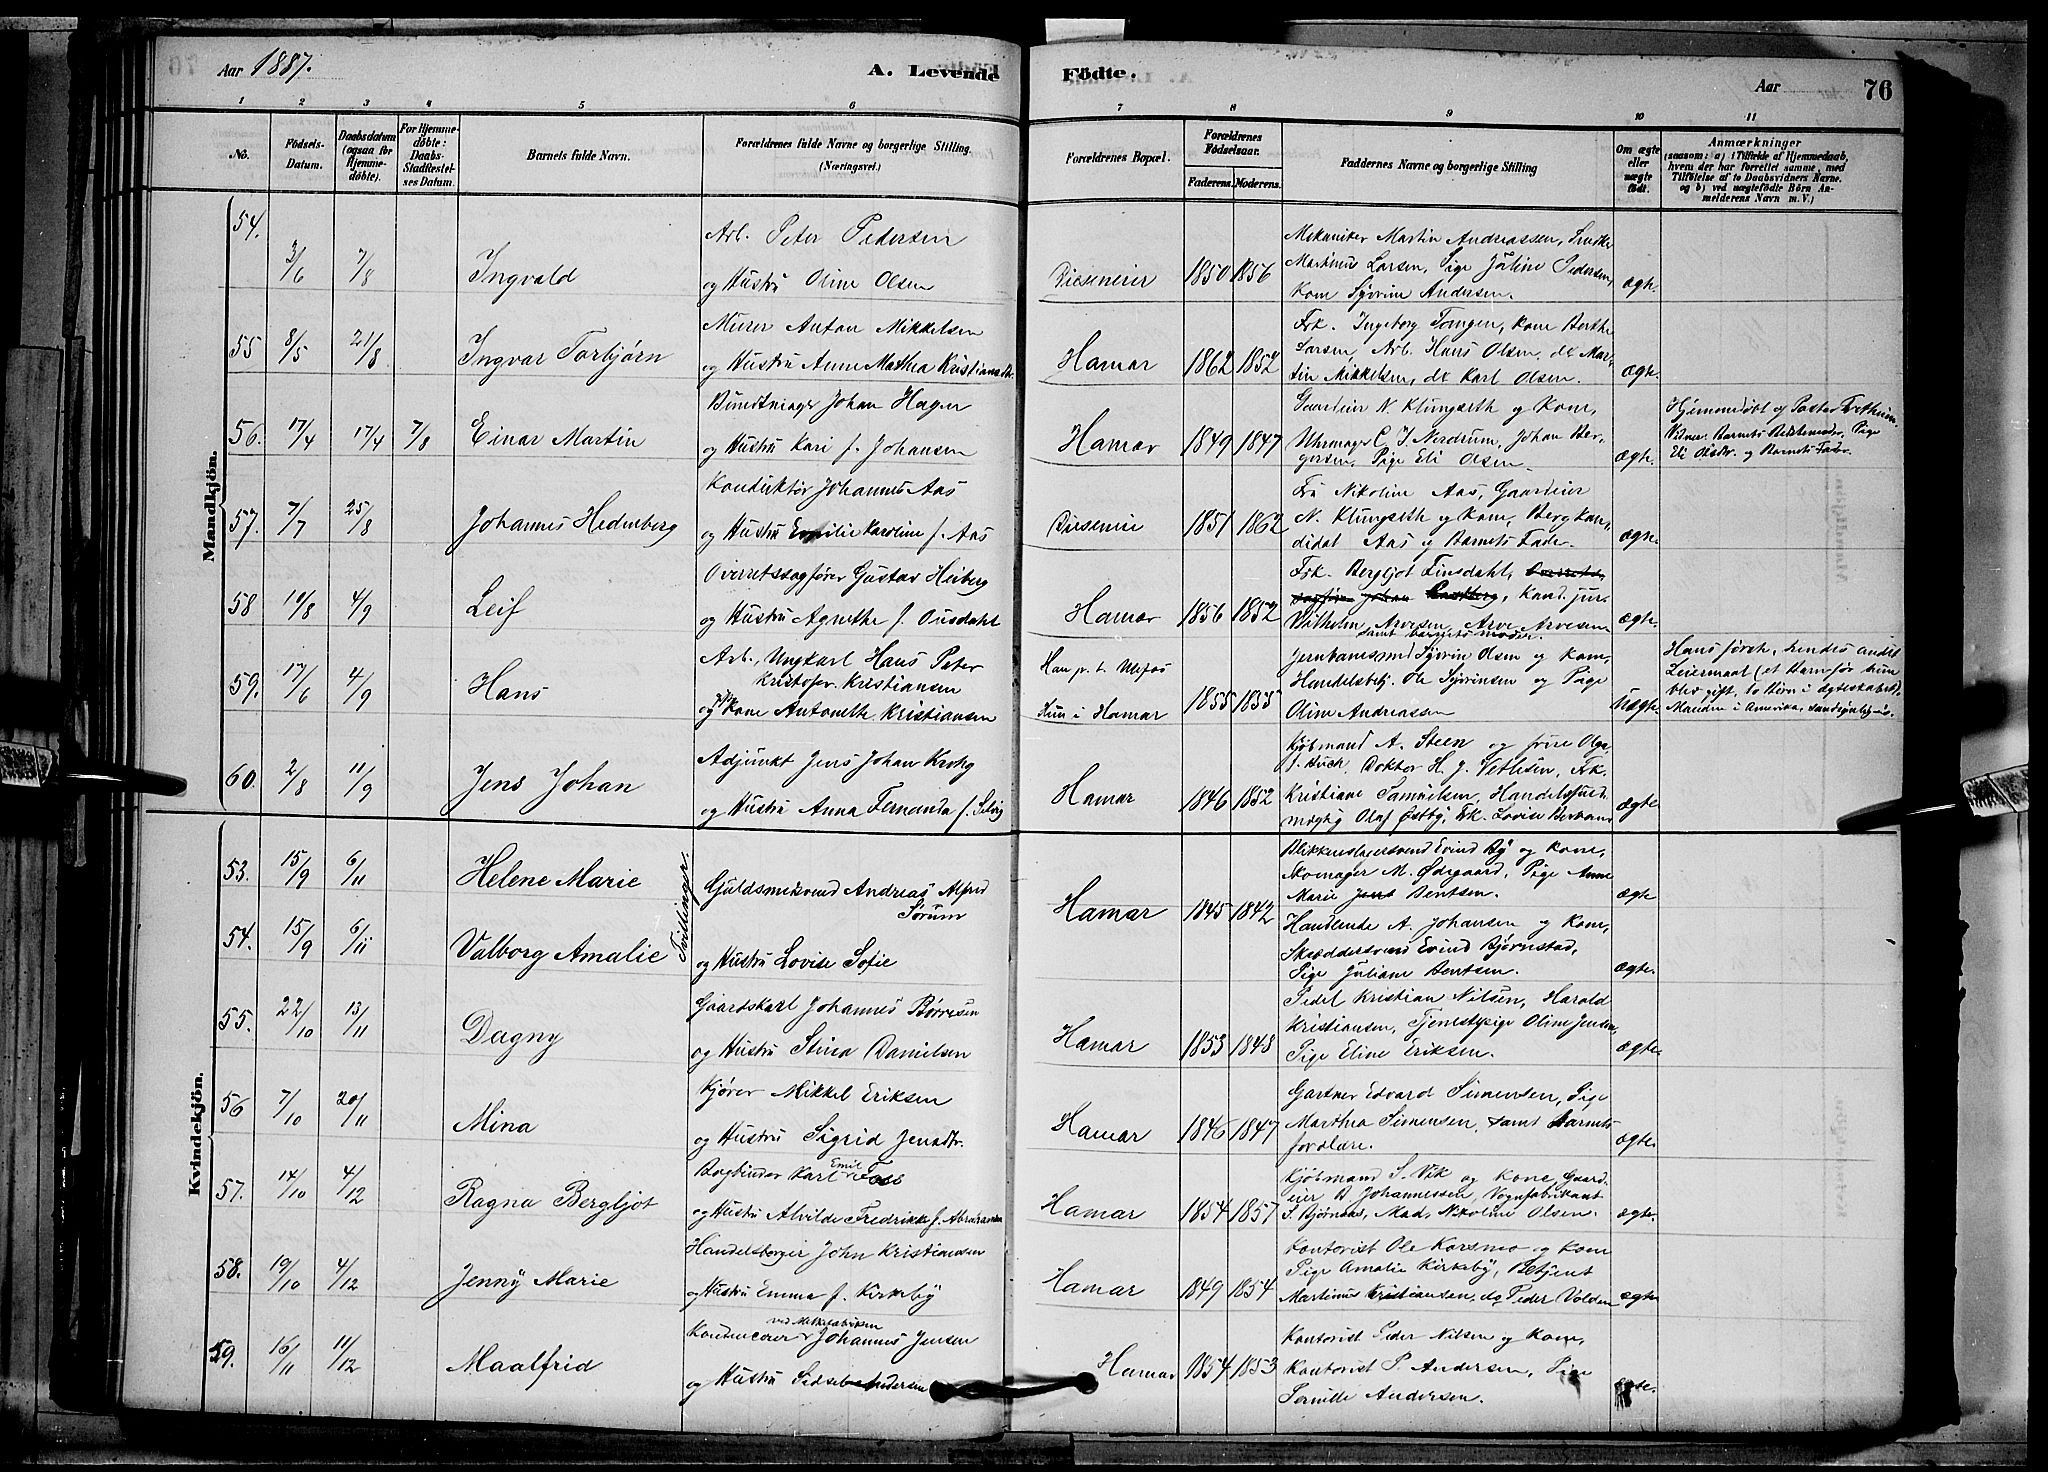 Aar 1887. A. Levende Födte. Aar 76
1 2 3 4 5 6 7 8 9 10 11
No.
Födsels-Datum.
Daabsdatum (ogsaa for Hjemme-döbte).
For Hjemme-döbte: Daabs-Stadfæstelses Datum.
Barnets fulde Navn.
Forældrenes fulde Navne og borgerlige Stilling.
(Næringsvei.)
Forældrenes Bopæl.
Forældrenes Födselsaar.
Faderens. Moderens.
Faddernes Navne og borgerlige Stilling
Om ægte eller uægte födt.
Anmærkninger
(saasom: a) i Tilfælde af Hjemmedaab,
hvem der har forrettet samme, med
Tilföielse af to Daabsvidners Navne.
og b) ved uægtefödte Börn An-
melderens Navn m. V.)
Mandkjön.
54. 3/6 7/8 Ingvald
Arb. Peter Pedersen
og Hustru Oline Olsen
1850 1856
Mekaniker Martin Andreassen,
Martinus Larsen, Pige Joline Pedersen,
Kone Syverine Andersen.
ægte.
55 8/5 21/8 Ingvar Torbjørn
Murer Anton Mikkelsen
og Hustru Anne Mathea Kristiansdtr.
Hamar 1862 1852
Frk. Ingeborg Tomgen, Kone Berthe
Larsen, Arb. Hans Olsen, do Mar-
tin Mikkelsen, do Karl Olsen.
ægte.
56. 17/4 17/4 7/8 Einar Martin
Bundtmager Johan Hagen
og Hustru Kari f. Johansen
Hamar 1849 1847
Gaardeier N. Klungseth og Kone,
Uhrmager C. J. Nordrum, Johan Ber-
gersen, Pige Eli Olsen.
ægte.
Hjemmedøbt af Pastor
Vidner: Barnets Bedstemoder, Pige
Eli Olsdtr. og Barnets Fader.
57. 7/7 25/8 Johannes Hedenberg
Konduktør Johannes Aas
og Hustru Emilie Karoline f. Aas
1851 1862
Fru Nikoline Aas, Gaardeier
N. Klungseth og Kone, Bergkan-
didat Aas og Barnets Fader.
ægte.
58 10/8 4/9 Leif
Overretssagfører Gustav Heiberg
og Hustru Agnethe f. Ousdahl
Hamar 1856 1852
Frk. Bergljot Finsdahl,
Kand. jur.
Vilhelm Arvesen, Arve Arvesen
samt barnets moder.
ægte.
59. 17/6 4/9 Hans
Arb., Ungkarl Hans Peter
Kristofer Kristiansen
og Kone Antonette Kristiansen
Han p. t. Ulefos
Hun i Hamar
1855 1855
Jernbanesmed Syverin Olsen og Kone,
Handelsbetj. Ole Syverinsen og Pige
Oline Andreassen
Uægte.
Hans første, hendes andet
Leiermaal (et Barn før hun
blev gift, to Børn i Ægteskabet).
Manden i Amerika, sandsynligvis.
60. 2/8 11/9 Jens Johan
Adjunkt Jens Johan Krohg
og Hustru Anna Fernanda f. Selvig
Hamar 1846 1852
Kjøbmand A. Steen og frue Olga
f. Buch, Doktor H. J. Vetlesen, Frk.
Kristiane Samuelsen, Handelsfuld-
mægtig Olaf Østby, Frk. Lovise
ægte
Kvindekjön.
53. 15/9 6/11 Helene Marie
Tvillinger.
Guldsmedsvend Andreas Alfred
Sørum
Hamar 1845 1842
Blikkenslagersvend Evind By og Kone,
Skomager M. Ødegaard, Pige Anne
Marie Bentsen.
ægte
54. 15/9 6/11 Valborg Amalie
og Hustru Lovise Sofie
Handlende A. Johansen og Kone,
Skræddersvend Evind Bjørnstad,
Pige Juliane Bentsen.
ægte.
55. 22/10 13/11 Dagny
Gaardskarl Johannes Børresen
og Hustru Stina Danielsen
Hamar 1853 1848
Pedel Kristian Nilsen, Harald
Kristiansen, Tjenestepige Oline Jensen,
Pige Eline Eriksen.
ægte.
56 7/10 20/11 Mina
Kjører Mikkel Eriksen
og Hustru Sigrid Jensdtr.
Hamar 1846 1847
Gartner Edvard Simensen, Pige
Marthea Simensen, samt Barnets
forældre.
ægte.
57. 14/10 4/12 Ragna Bergljot
Bogbinder Karl Emil Foss
og Hustru Alvilde Fredrikke f. Abrahamsen
Hamar 1854 1857
Kjøbmand S. Vik og Kone, Gaard-
eier B. Johannessen, Vognfabrikant
S. Bjørnaas, Mad. Nikoline Olsen.
ægte.
58. 19/10 4/12 Jenny Marie
Handelsborger John Kristiansen
og Hustru Emma f. Kirkeby
Hamar 1849 1854
Kontorist Ole Korsmo og Kone
Pige Amalie Kirkeby, Betjent
Martinus Kristiansen, do Peder Volden
ægte
59. 16/11 11/12 Maalfrid
ved Melkefabriken
Kondencerer Johannes Jensen
og Hustru Sidsel Andersen
Hamar 1854 1853
Kontorist Peder Nilsen og Kone,
Kontorist P. Andersen, Pige
Pernille Andersen.
ægte.